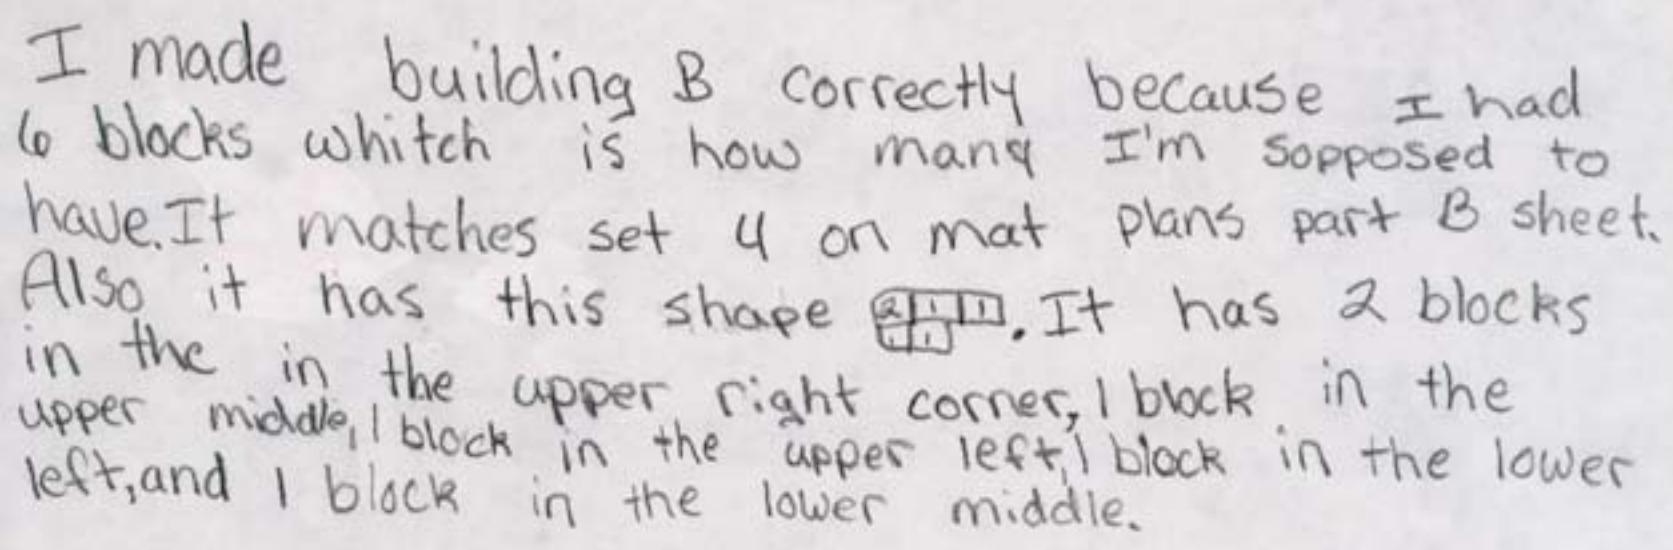 I made building B correctly because I had
6 blocks whitch is how many I'm sopposed to
have. It matches set 4 on mat plans part B sheet.
Also it has this shape 2 1 1 1 . It has 2 blocks
in the in the upper right corner, 1 block in the
upper middle, 1 block in the upper left, 1 block in the lower
left, and 1 block in the lower middle.